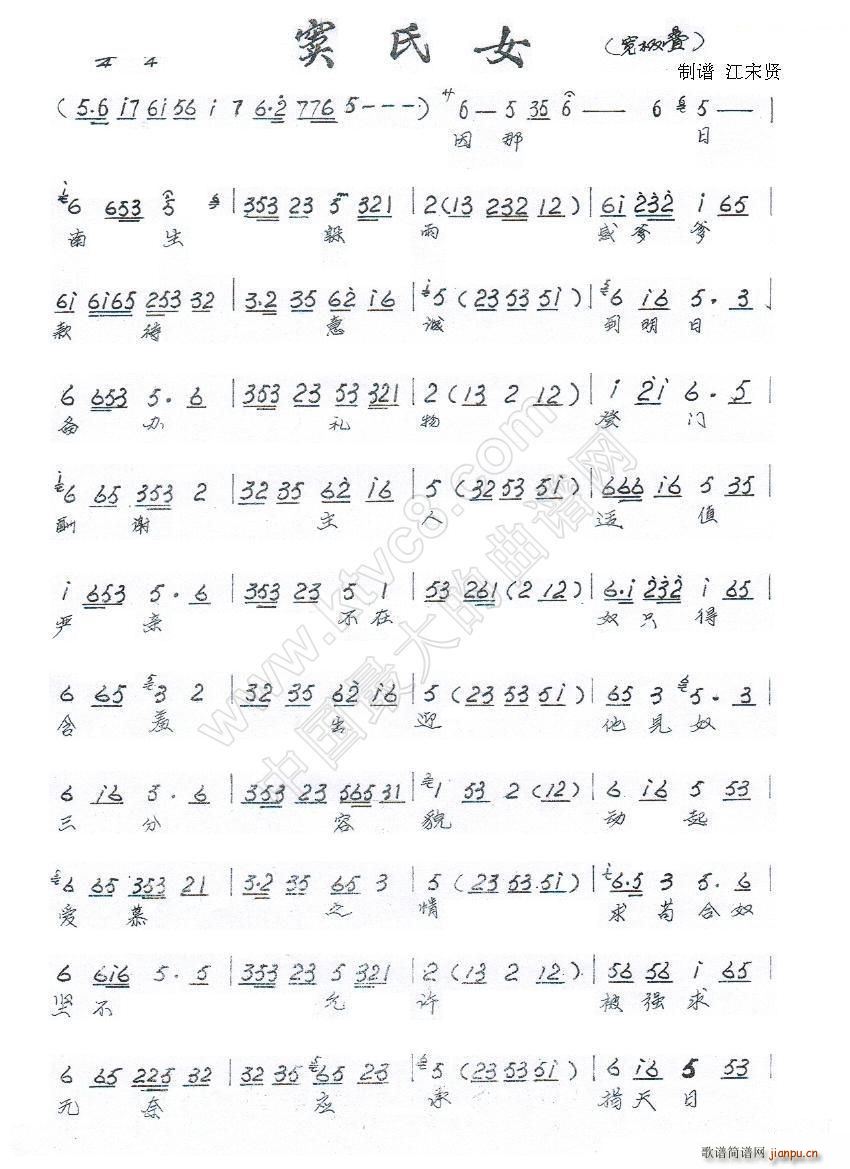 窦氏女 (宽板叠)
4 4
制谱 江宋贤
(5·6 i7 6i56 i 7 6·2 776 5---) サ6— 5 35 6—— 6 5— |
因那 日
6 653 5 | 353 23 5 321 | 2(13 232 12) | 6i 232 i 65
南生 躲 雨 感爹爹
6i 6i65 253 32 | 3·2 35 62 i6 | 5(23 53 5i) | 6 i6 5·3
款待 意 诚 到明日
6 653 5·6 | 353 23 53 321 | 2(13 2 12) | i 2i 6·5 |
备办 礼 物 登门
6 65 353 2 | 32 35 62 i6 | 5(32 53 5i) | 666 i6 5 35 |
酬谢 主 人 适值
i 653 5·6 | 353 23 5 1 | 53 261(2 12) | 6·i 232 i 65 |
严亲 不在 奴只得
6 65 3 2 | 32 35 62 i6 | 5(23 53 5i) | 65 3 5·3 |
含羞 出 迎 他见奴
6 i6 5·6 | 353 23 565 31 | 1 53 2(12) | 6 i6 5 53 |
三分 容 貌 动起
6 65 353 21 | 3·2 35 65 3 | 5(23 53 5i) | 6·5 3 5·6 |
爱慕 之 情 求苟合奴
6 6i6 5·5 | 353 23 5 321 | 2(13 2 12) | 56 56 i 65 |
坚不 允 许 被强求
6 65 225 32 | 32 35 65 23 | 5(23 53 5i) | 6 i6 5 53 |
无奈 应 承 指天日
www.ktvc8.com
中国最大的曲谱网
歌谱简谱网 jianpu.cn